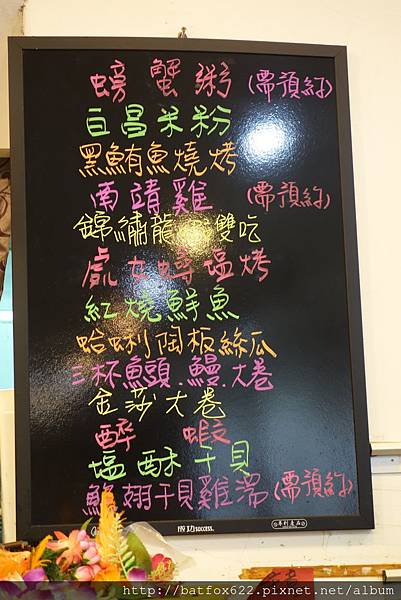 螃蟹粥(需預約)
白昌米粉
黑鮪魚燒烤
南靖雞 (需預約)
錦繡龍 雙吃
處女蟳塩烤
紅燒鮮魚
哈蜊陶板絲瓜
三杯魚頭.鰻.大卷
金莎大卷
醉 蝦
塩酥干貝
魚翅干貝雞湯(需預約)
success.
專利產品
http://batfox622.pixnet.net/album